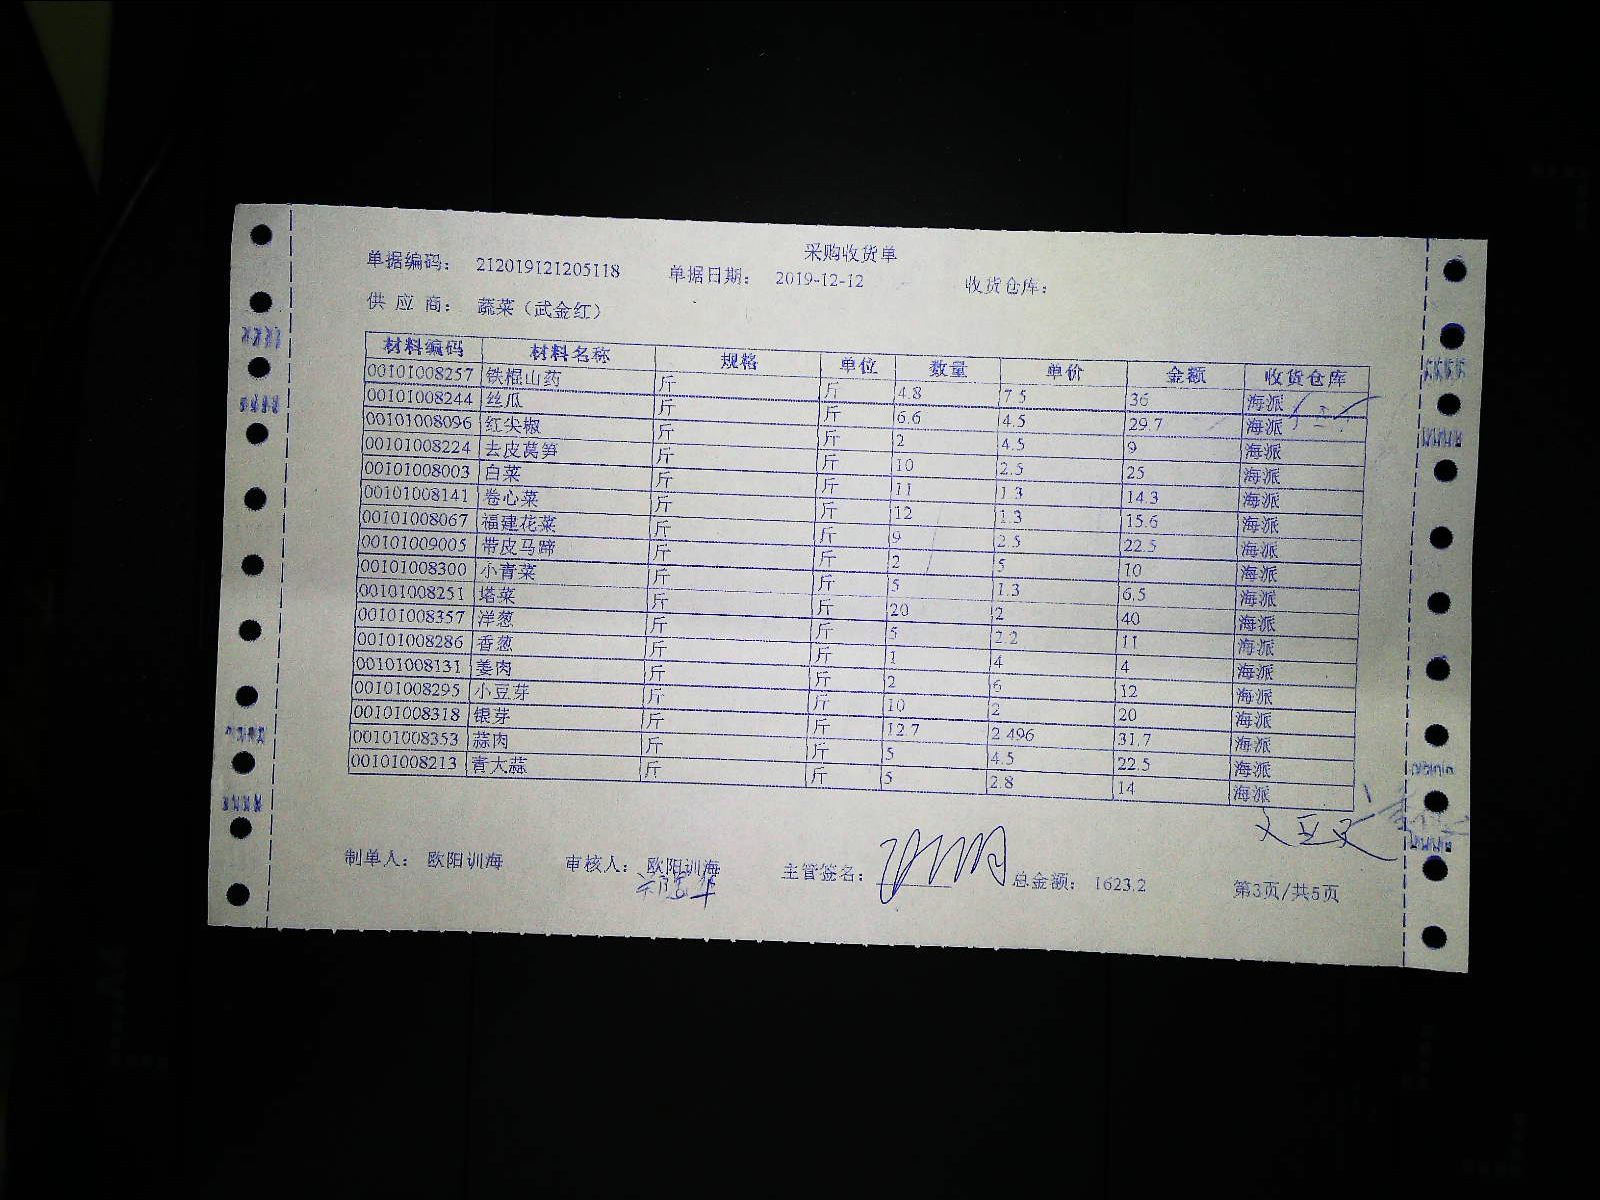 采购收货单
单据编码： 212019121205118 单据日期： 2019-12-12 收货仓库：
供 应 商： 蔬菜（武金红）
材料编码 材料名称 规格 单位 数量 单价 金额 收货仓库
00101008257 铁棍山药 斤 斤 4.8 7.5 36 海派
00101008244 丝瓜 斤 斤 6.6 4.5 29.7 海派
00101008096 红尖椒 斤 斤 2 4.5 9 海派
00101008224 去皮莴笋 斤 斤 10 2.5 25 海派
00101008003 白菜 斤 斤 11 1.3 14.3 海派
00101008141 卷心菜 斤 斤 12 1.3 15.6 海派
00101008067 福建花菜 斤 斤 9 2.5 22.5 海派
00101009005 带皮马蹄 斤 斤 2 5 10 海派
00101008300 小青菜 斤 斤 5 1.3 6.5 海派
00101008251 塔菜 斤 斤 20 2 40 海派
00101008357 洋葱 斤 斤 5 2.2 11 海派
00101008286 香葱 斤 斤 1 4 4 海派
00101008131 姜肉 斤 斤 2 6 12 海派
00101008295 小豆芽 斤 斤 10 2 20 海派
00101008318 银芽 斤 斤 12.7 2.496 31.7 海派
00101008353 蒜肉 斤 斤 5 4.5 22.5 海派
00101008213 青大蒜 斤 斤 5 2.8 14 海派
制单人： 欧阳训海 审核人： 欧阳训海 主管签名： 总金额： 1623.2 第3页/共5页